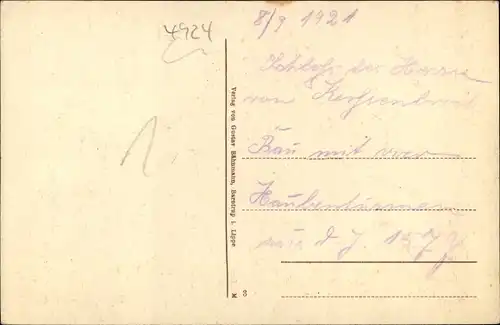 4924
8/9 1921
Schloß der Herren
von Kerssenbrock
Bau mit vier
Haubentürmen
aus d J. 1577
1
Verlag von Gustav Bähnmahn, Barntrup i. Lippe
M 3